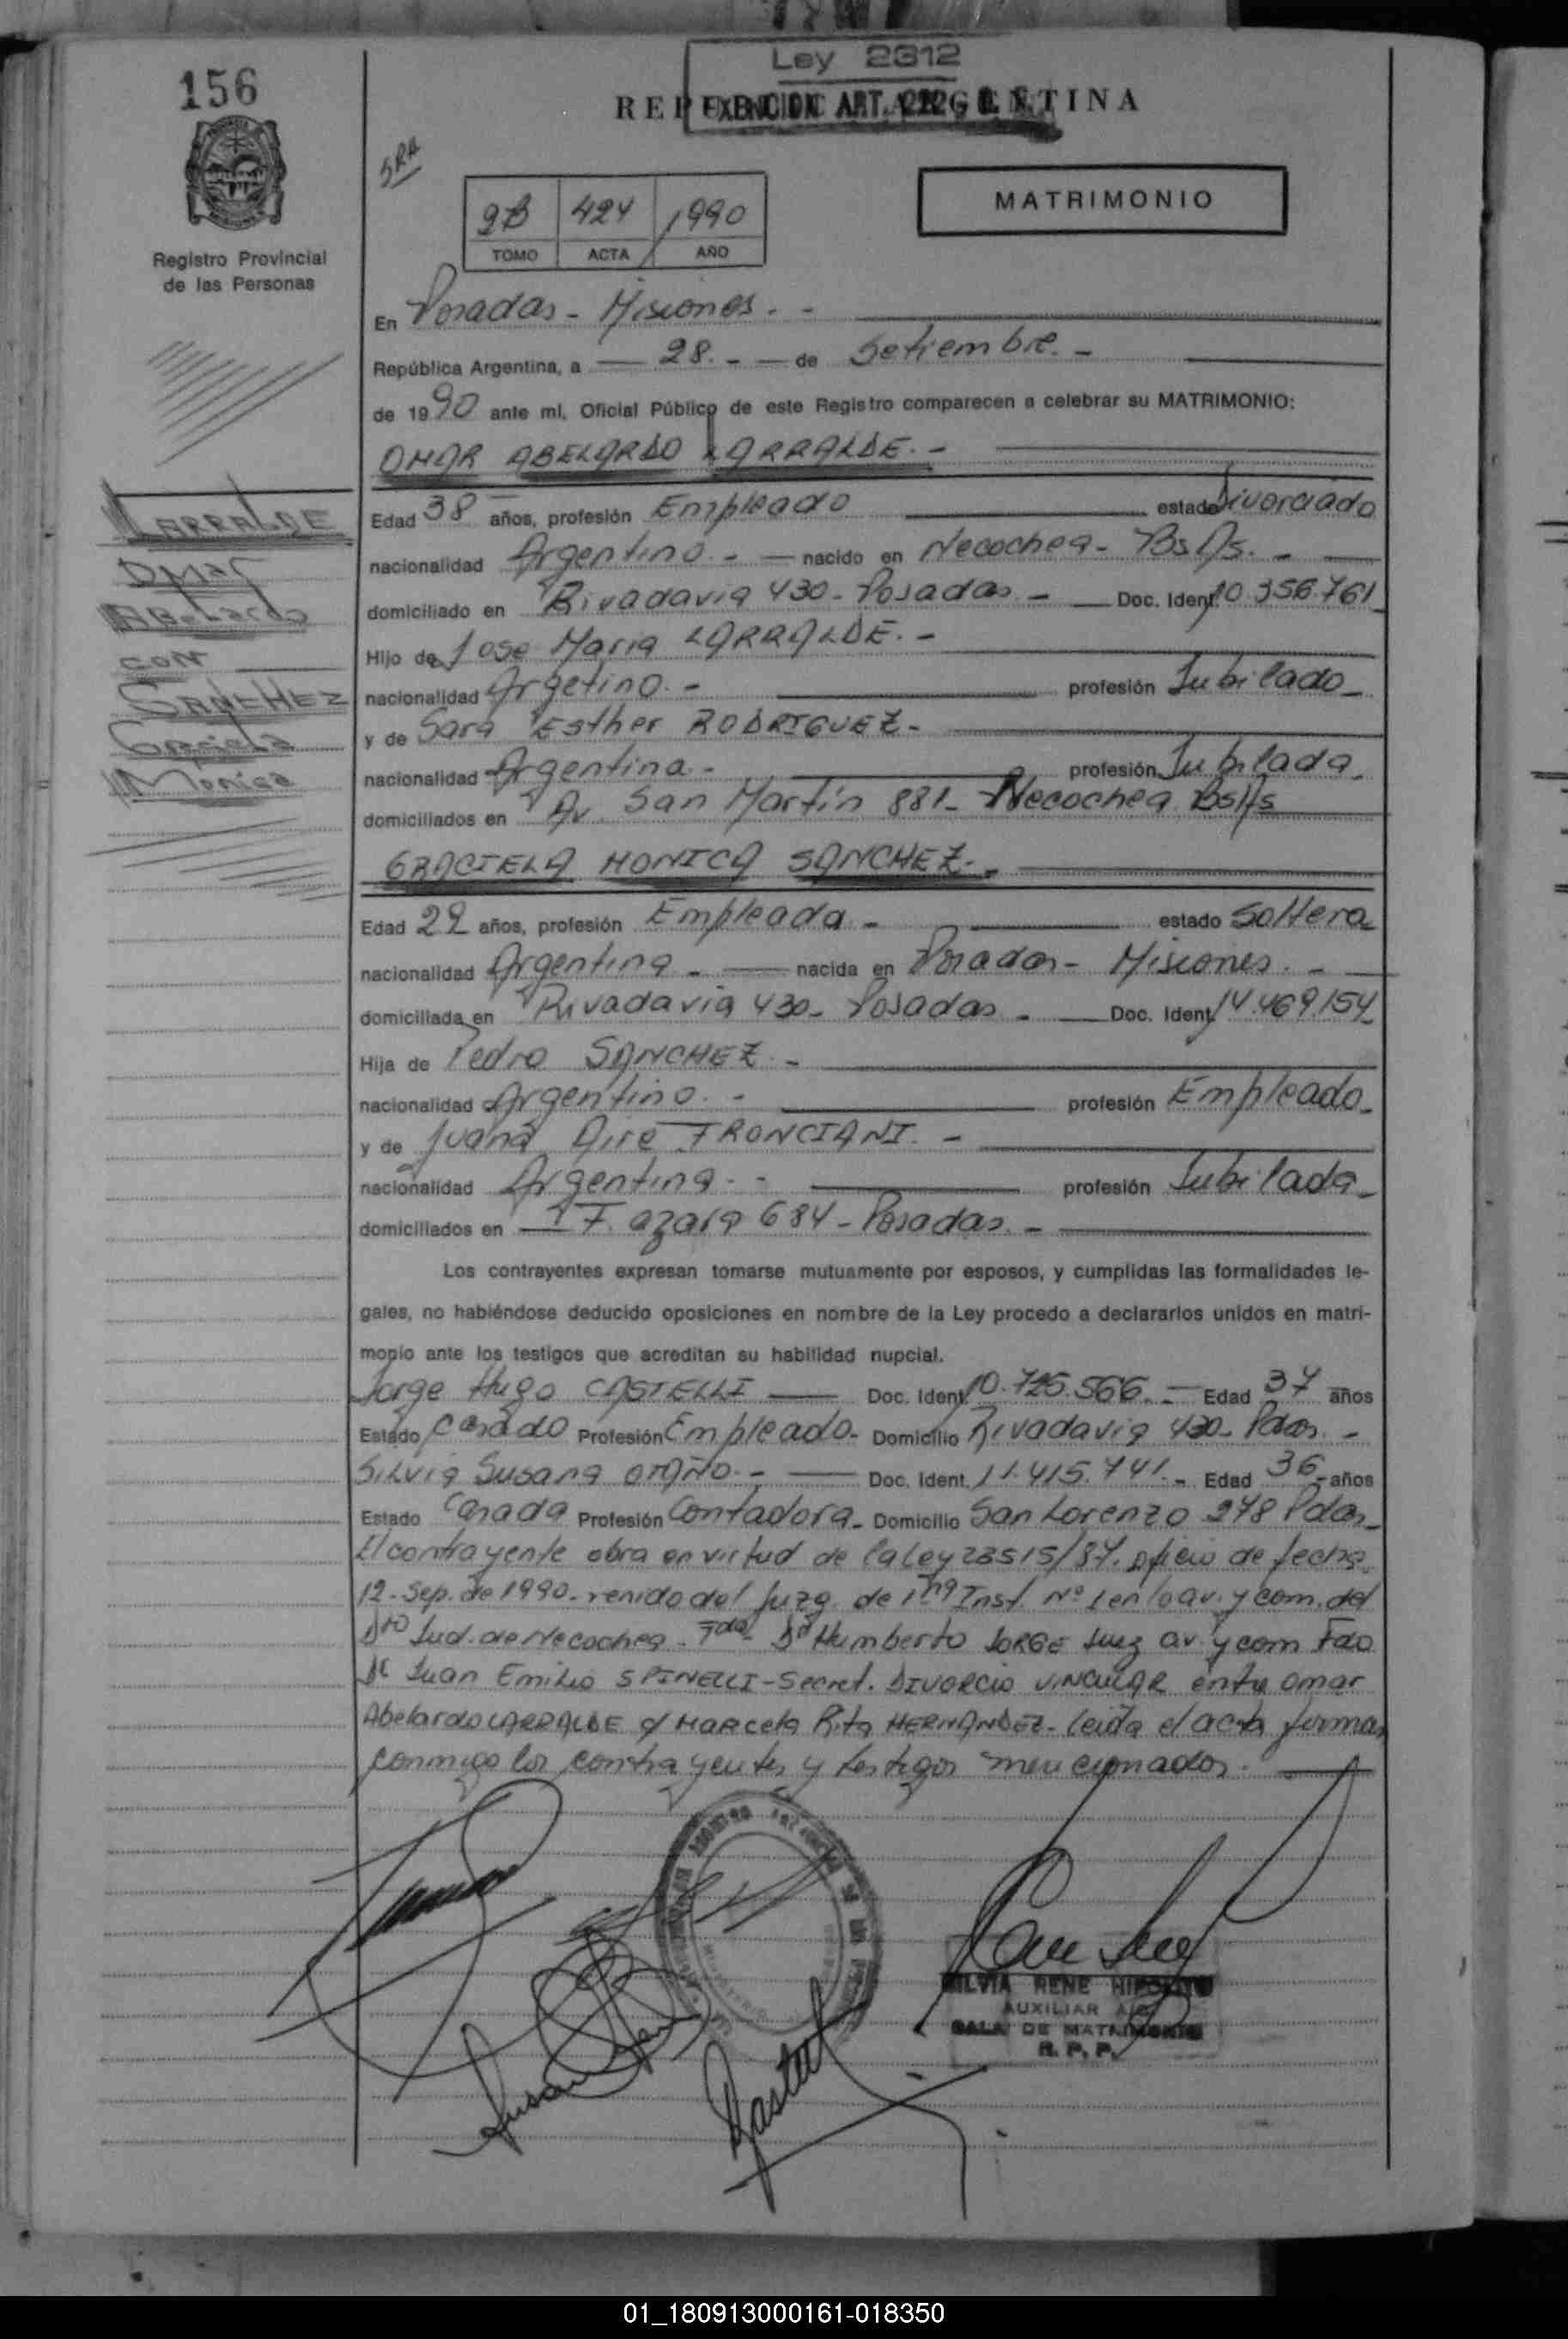 156
Ley 2312
REPUBLICA ARGENTINA
EXENCION ART. 222
SRA
MATRIMONIO
2B 424 1990
TOMO ACTA AÑO
Registro Provincial
de las Personas
En Posadas - Misiones. -
República Argentina, a 28. - de Setiembre. -
de 1990 ante mí, Oficial Público de este Registro comparecen a celebrar su MATRIMONIO:
OMAR ABELARDO LARRALDE. -
LARRALDE
Omar
Abelardo
CON
SANCHEZ
Graciela
Monica
Edad 38 años, profesión Empleado estado Divorciado
nacionalidad Argentino. - nacido en Necochea - Bs As. -
domiciliado en Rivadavia 430 - Posadas - Doc. Ident. 10.356.761
Hijo de Jose Maria LARRALDE. -
nacionalidad Argetino. - profesión Jubilado -
y de Sara Esther RODRIGUEZ -
nacionalidad Argentina. - profesión Jubilada.
domiciliados en Av. San Martin 881 - Necochea BsAs
GRACIELA MONICA SANCHEZ. -
Edad 29 años, profesión Empleada - estado Soltera
nacionalidad Argentina - nacida en Posadas - Misiones. -
domiciliada en Rivadavia 430 - Posadas - Doc. Ident. 14.469.154
Hija de Pedro SANCHEZ -
nacionalidad Argentino. - profesión Empleado.
y de Juana Aire FRONCIANI. -
nacionalidad Argentina. - profesión Jubilada -
domiciliados en F. azara 684 - Posadas. -
Los contrayentes expresan tomarse mutuamente por esposos, y cumplidas las formalidades le-
gales, no habiéndose deducido oposiciones en nombre de la Ley procedo a declararlos unidos en matri-
monio ante los testigos que acreditan su habilidad nupcial.
Jorge Hugo CASTELLI Doc. Ident. 10.725.566. - Edad 37 años
Estado casado Profesión Empleado - Domicilio Rivadavia 430 - Pdas. -
Silvia Susana OTAÑO. - Doc. Ident. 11.415.741. - Edad 36 años
Estado Casada Profesión Contadora - Domicilio San Lorenzo 278 Pdas -
El contrayente obra en virtud de la Ley 23515/87. oficio de fecha
12 - Sep. de 1990 - venido del Juzg. de 1ra Inst. Nº 1 en lo civ. y com. del
Dto Jud. de Necochea - Fdo - Dr Humberto JORGE Juez civ. y com Fdo
Dr Juan Emilio SPINELLI - Secret. DIVORCIO VINCULAR entre omar
Abelardo LARRALDE c/ Marcela Rita HERNANDEZ - leida el acta firman
conmigo los contrayentes y testigos mencionados. -
SILVIA RENE HIPOLITO
AUXILIAR
SALA DE MATRIMONIO
R. P. P.
01_180913000161-018350